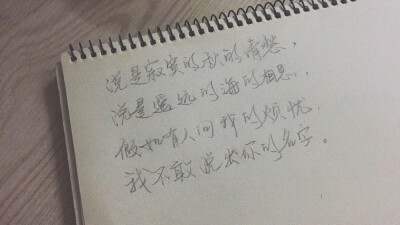 说是寂寞的秋的清愁，
说是遥远的海的相思．
假如有人问我的烦忧．
我不敢说出你的名字。